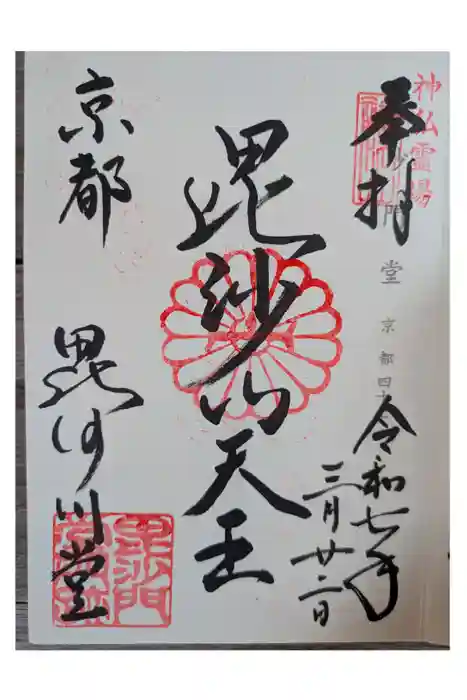 神仏霊場
奉拝
毘沙門堂 京都四十
令和七年
三月廿二日
毘沙門天王
京都
毘沙門堂